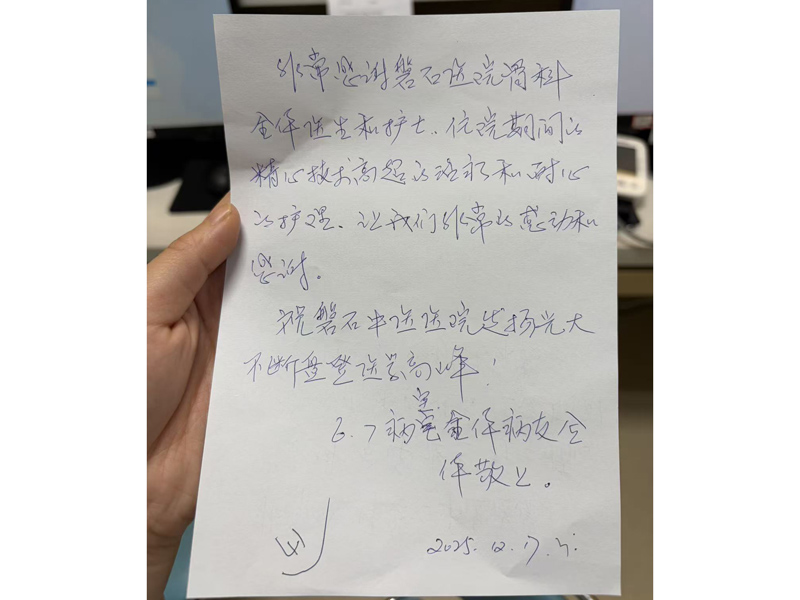 非常感谢磐石医院骨科
全体医生和护士、住院期间的
精心技术高超的治疗和耐心
的护理、让我们非常的感动和
感谢。
祝磐石中医医院发扬光大
不断攀登医学高峰！
室
6.7病室全体病友全
体敬上。
2025.12.17.